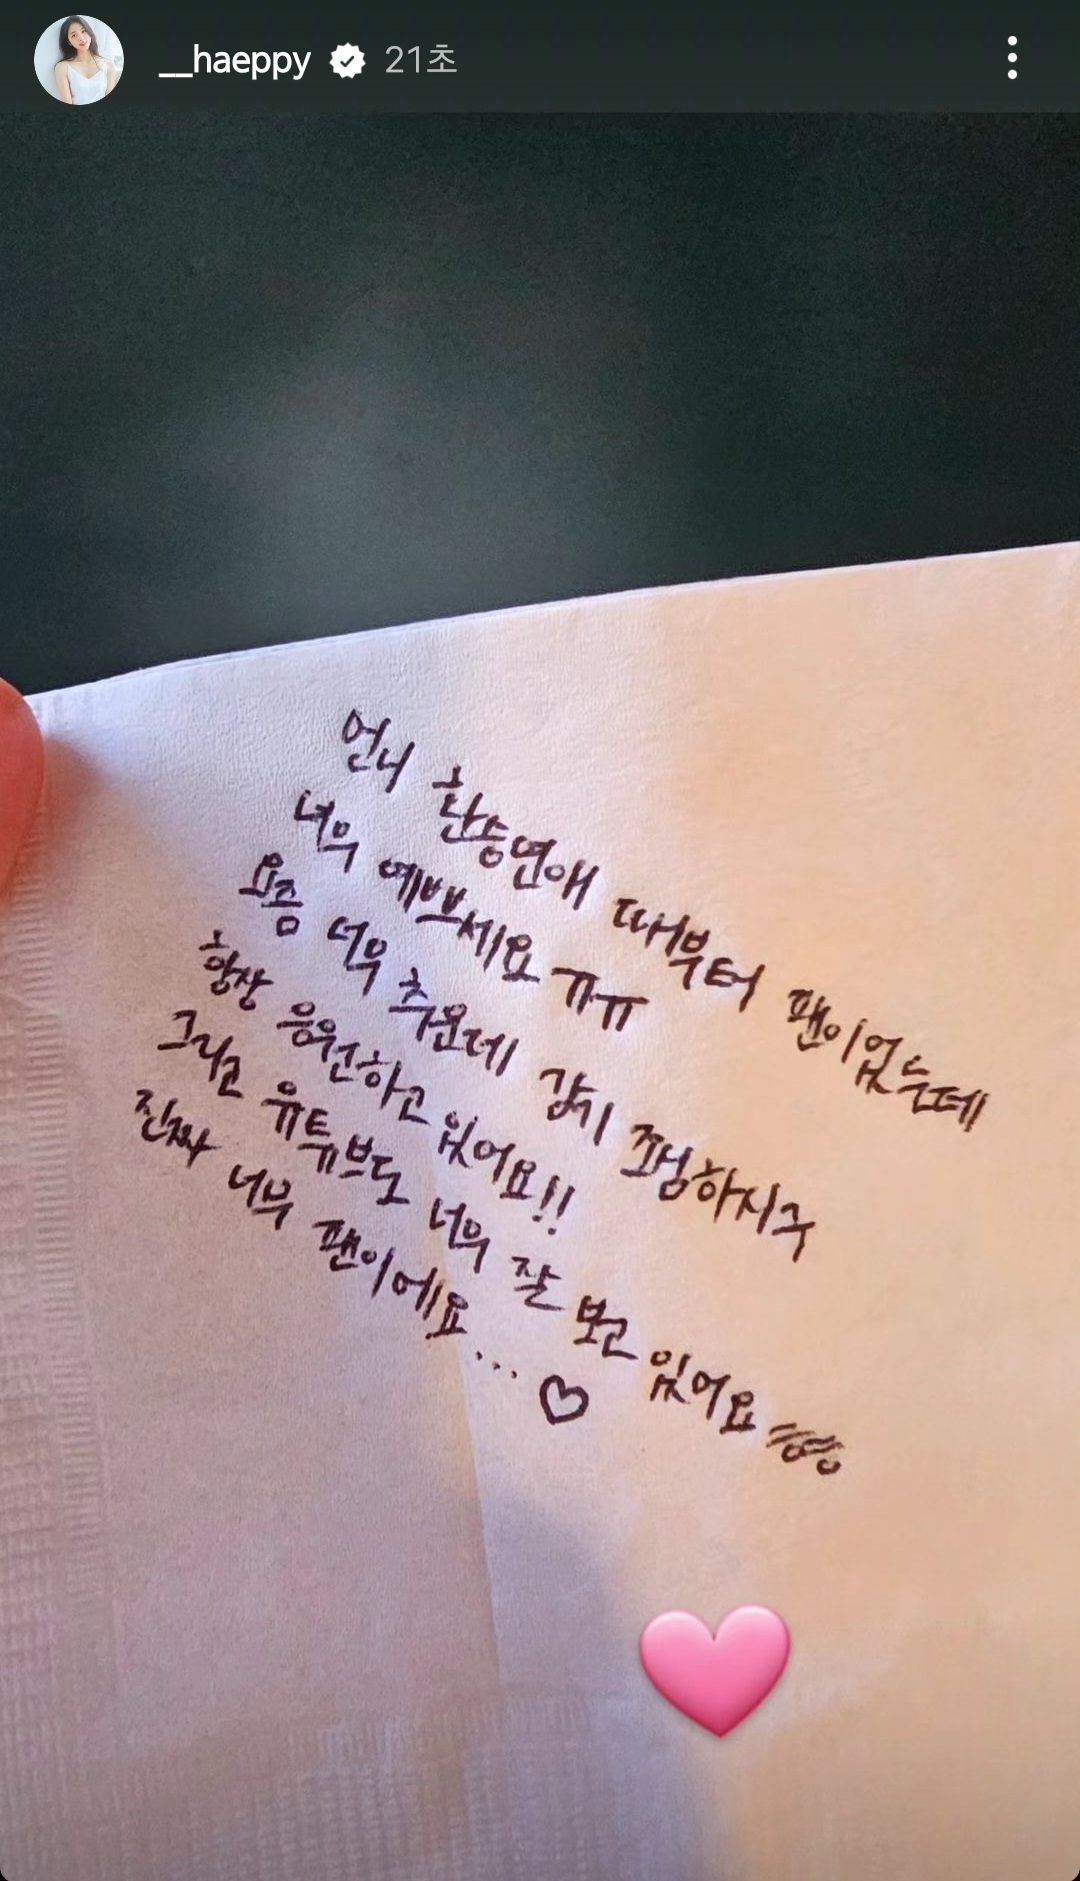 __haeppy 21초
언니 환승연애 때부터 팬이었는데
너무 예쁘세요 ㅠㅠ
요즘 너무 추운데 감기 조심하시구
항상 응원하고 있어요!!
그리고 유튜브도 너무 잘 보고 있어요
진짜 너무 팬이에요... ♡